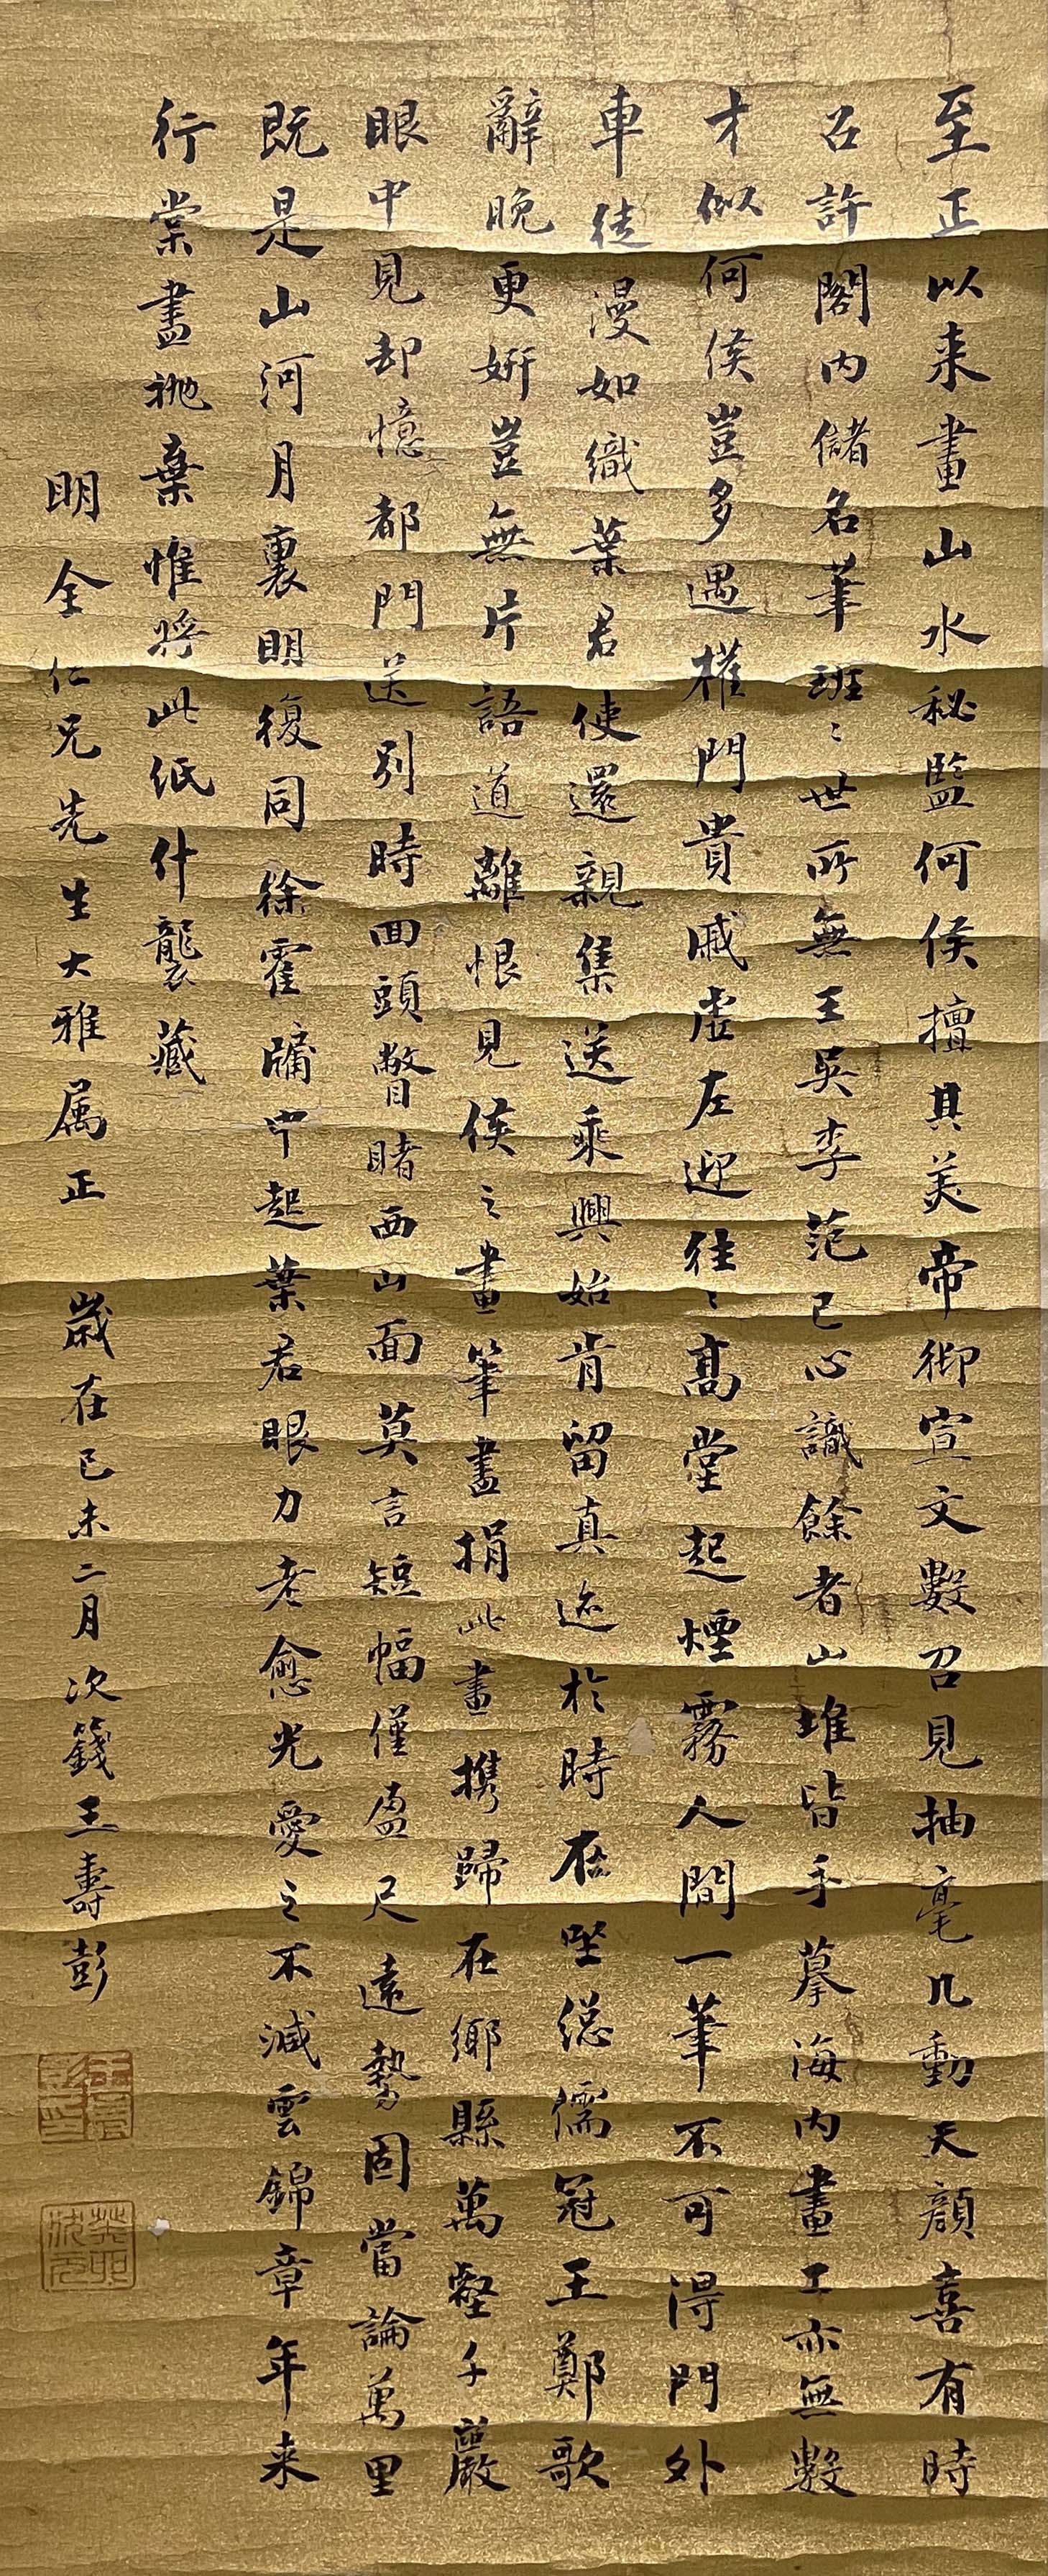 至正以来畫山水秘監何侯擅其美帝御宣文數召見抽毫几動天顔喜有時
召許閣内儲名筆班〻世所無王吳李范已心識餘者山堆皆手摹海内畫工亦無數
才似何侯豈多遇權門貴戚虚左迎往〻髙堂起煙霧人間一筆不可得門外
車徒漫如織葉君使還親集送乘興始肯留真迹於時在㘴総儒冠王鄭歌
辭晚更妍豈無片語道離恨見侯之畫筆盡捐此畫携歸在鄉縣萬壑千巖
眼中見却憶都門送别時回頭瞥睹西山面莫言短幅僅盈尺遠勢固當論萬里
既是山河月裏明復同徐霍牗中起葉君眼力老愈光愛之不減雲錦章年来
行橐盡抛棄惟將此纸什襲藏
明全仁兄先生大雅属正 歲在己未二月次籛王壽彭